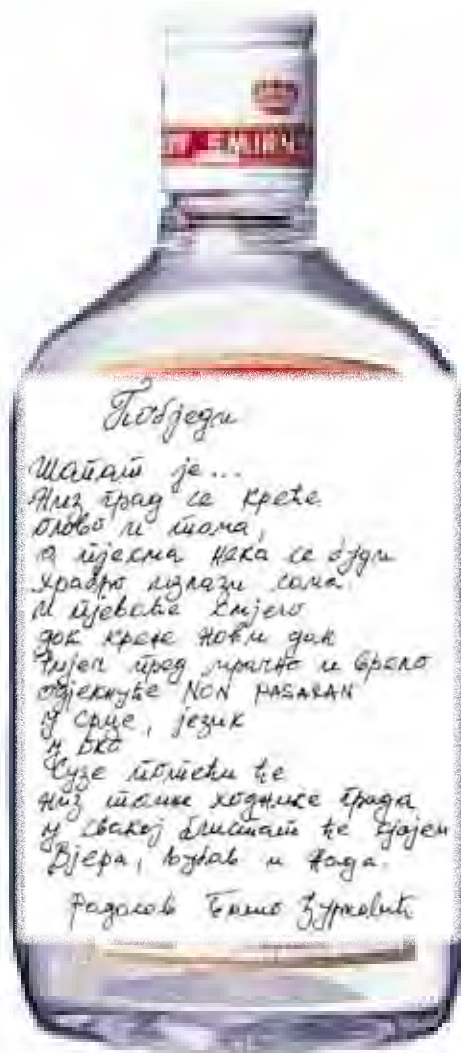 SMIRN
Побједи
Шапат је...
Низ град се креће
олово и тама,
а пјесма нека се буди
храбро излази сама.
И пјеваће смјело
док креће нови дан
ријеч пред мрачно и врело
одјекнуће NON PASARAN
у срце, језик
и око
Сузе потећи ће
низ тамне ходнике града
у свакој блистат ће сјајем
Вјера, љубав и нада.
Радослав